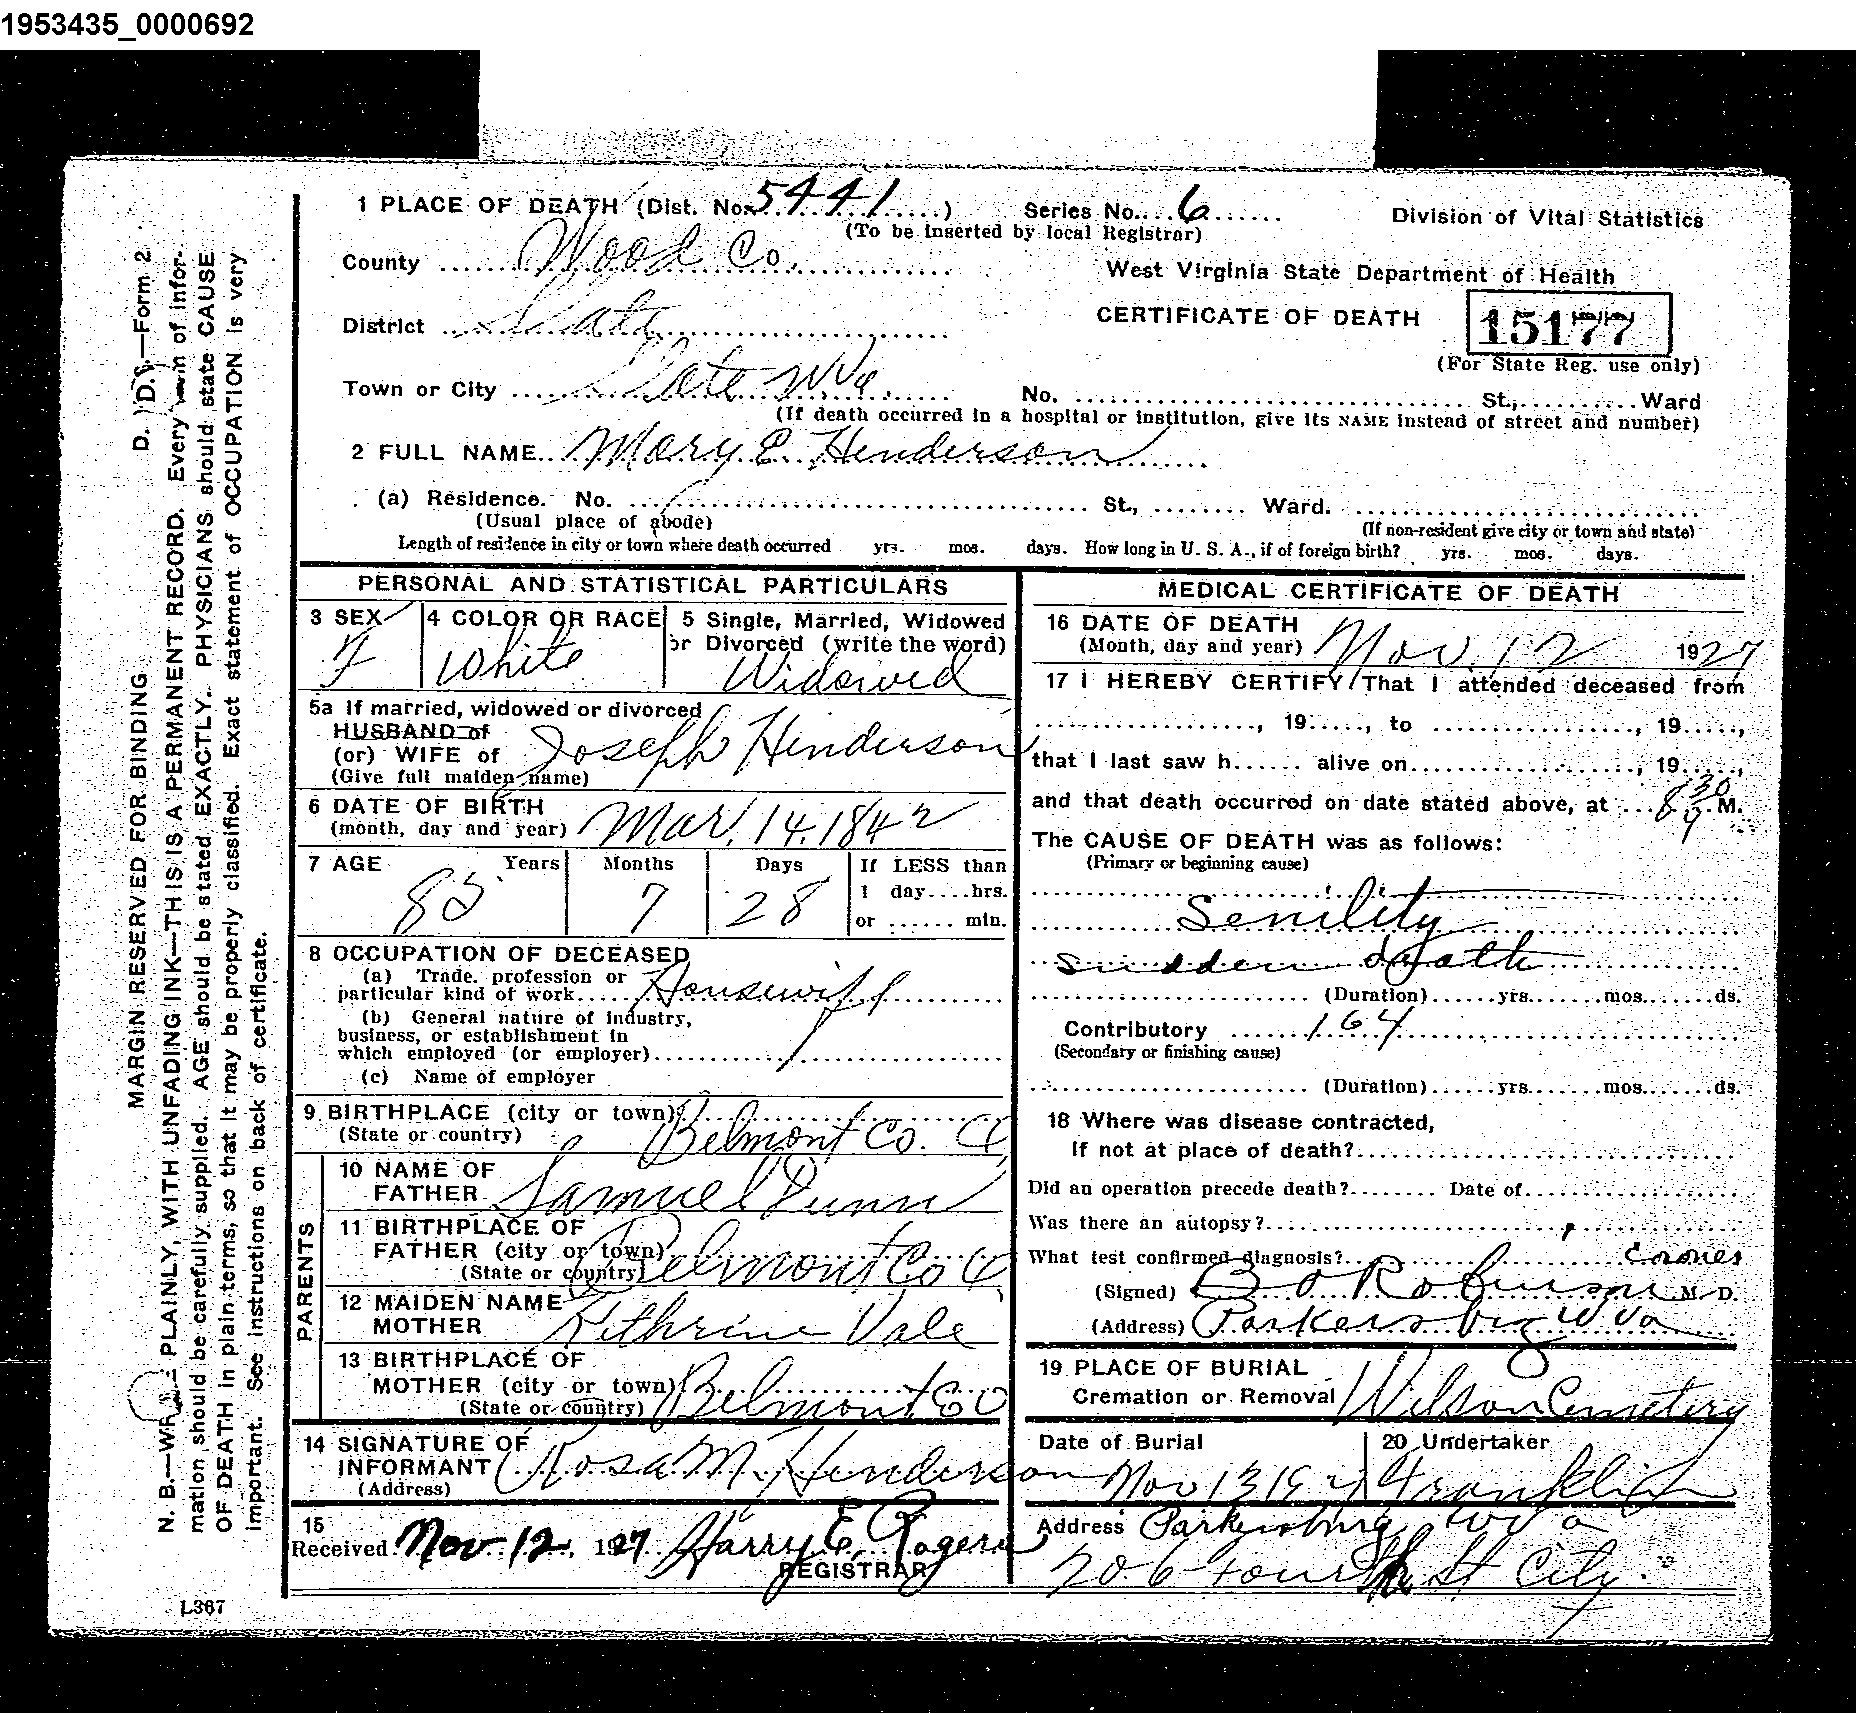 1953435_0000692
1 PLACE OF DEATH (Dist. No. 5441 ) Series No. 6 Division of Vital Statistics
(To be inserted by local Registrar)
County Wood Co.
West Virginia State Department of Health
District Slate
CERTIFICATE OF DEATH 15177
(For State Reg. use only)
Town or City Slate W Va. No. St., Ward
(If death occurred in a hospital or institution, give its NAME instead of street and number)
2 FULL NAME Mary E. Henderson
(a) Residence. No. St., Ward.
(Usual place of abode) (If non-resident give city or town and state)
Length of residence in city or town where death occurred yrs. mos. days. How long in U. S. A., if of foreign birth? yrs. mos. days.
PERSONAL AND STATISTICAL PARTICULARS
3 SEX 4 COLOR OR RACE 5 Single, Married, Widowed
or Divorced (write the word)
F White Widowed
5a If married, widowed or divorced
HUSBAND of
(or) WIFE of Joseph Henderson
(Give full maiden name)
6 DATE OF BIRTH
(month, day and year) Mar. 14. 1842
7 AGE Years Months Days If LESS than
1 day....hrs.
or ...... min.
85 7 28
8 OCCUPATION OF DECEASED
(a) Trade, profession or
particular kind of work Housewife
(b) General nature of industry,
business, or establishment in
which employed (or employer)
(c) Name of employer
9 BIRTHPLACE (city or town)
(State or country) Belmont Co. O
PARENTS
10 NAME OF
FATHER Samuel Dunn
11 BIRTHPLACE OF
FATHER (city or town)
(State or country) Belmont Co O
12 MAIDEN NAME
MOTHER Kithrine Vale
13 BIRTHPLACE OF
MOTHER (city or town)
(State or country) Belmont Co O
14 SIGNATURE OF
INFORMANT Rosa M. Henderson
(Address)
15
Received Nov 12, 1927 Harry E. Rogers
REGISTRAR
MEDICAL CERTIFICATE OF DEATH
16 DATE OF DEATH
(Month, day and year) Nov. 12 1927
17 I HEREBY CERTIFY, That I attended deceased from
, 19....., to , 19.....,
that I last saw h...... alive on , 19.....,
and that death occurred on date stated above, at 8 30 M.
The CAUSE OF DEATH was as follows:
(Primary or beginning cause)
Senility
sudden death
(Duration) yrs. mos. ds.
Contributory 164
(Secondary or finishing cause)
(Duration) yrs. mos. ds.
18 Where was disease contracted,
if not at place of death?
Did an operation precede death? Date of
Was there an autopsy?
What test confirmed diagnosis?
(Signed) B O Robinson M. D.
(Address) Parkersburg W Va
19 PLACE OF BURIAL
Cremation or Removal Wilson Cemetery
Date of Burial 20 Undertaker
Nov 13 1927 Franklin
Address Parkersburg W Va
206 Fourth St City.
L367
D. D.—Form 2
MARGIN RESERVED FOR BINDING
N. B.—WRITE PLAINLY, WITH UNFADING INK—THIS IS A PERMANENT RECORD. Every item of infor-
mation should be carefully supplied. AGE should be stated EXACTLY. PHYSICIANS should state CAUSE
OF DEATH in plain terms, so that it may be properly classified. Exact statement of OCCUPATION is very
important. See instructions on back of certificate.